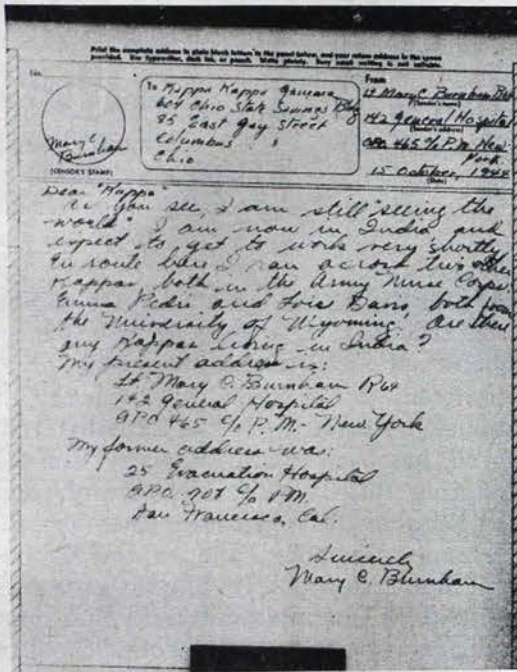 Print the complete address in plain block letters in the panel below, and your return address in the space
provided. Use typewriter, dark ink, or pencil. Write plainly. Very small writing is not suitable.
No.
To Kappa Kappa Gamma
604 Ohio State Savings Bldg
85 East Gay Street
Columbus
Ohio
From
Lt Mary C. Burnham
(Sender's name)
142 General Hospital
(Sender's address)
APO 465 c/o P.M. New
York
15 October, 1944
(Date)
Mary C
Burnham
(CENSOR'S STAMP)
Dear "Kappa"
As you see, I am still "seeing the
world" I am now in India and
expect to get to work very shortly
En route here I ran across two other
Kappas both in the Army Nurse Corps,
Emma and Lois Davis both from
the University of Wyoming. Are there
any Kappas living in India?
My present address is:
Lt Mary C. Burnham
142 General Hospital
APO 465 c/o P.M. - New York
My former address was:
25 Evacuation Hospital
APO 708 c/o P.M.
San Francisco, Cal.
Sincerely
Mary C. Burnham